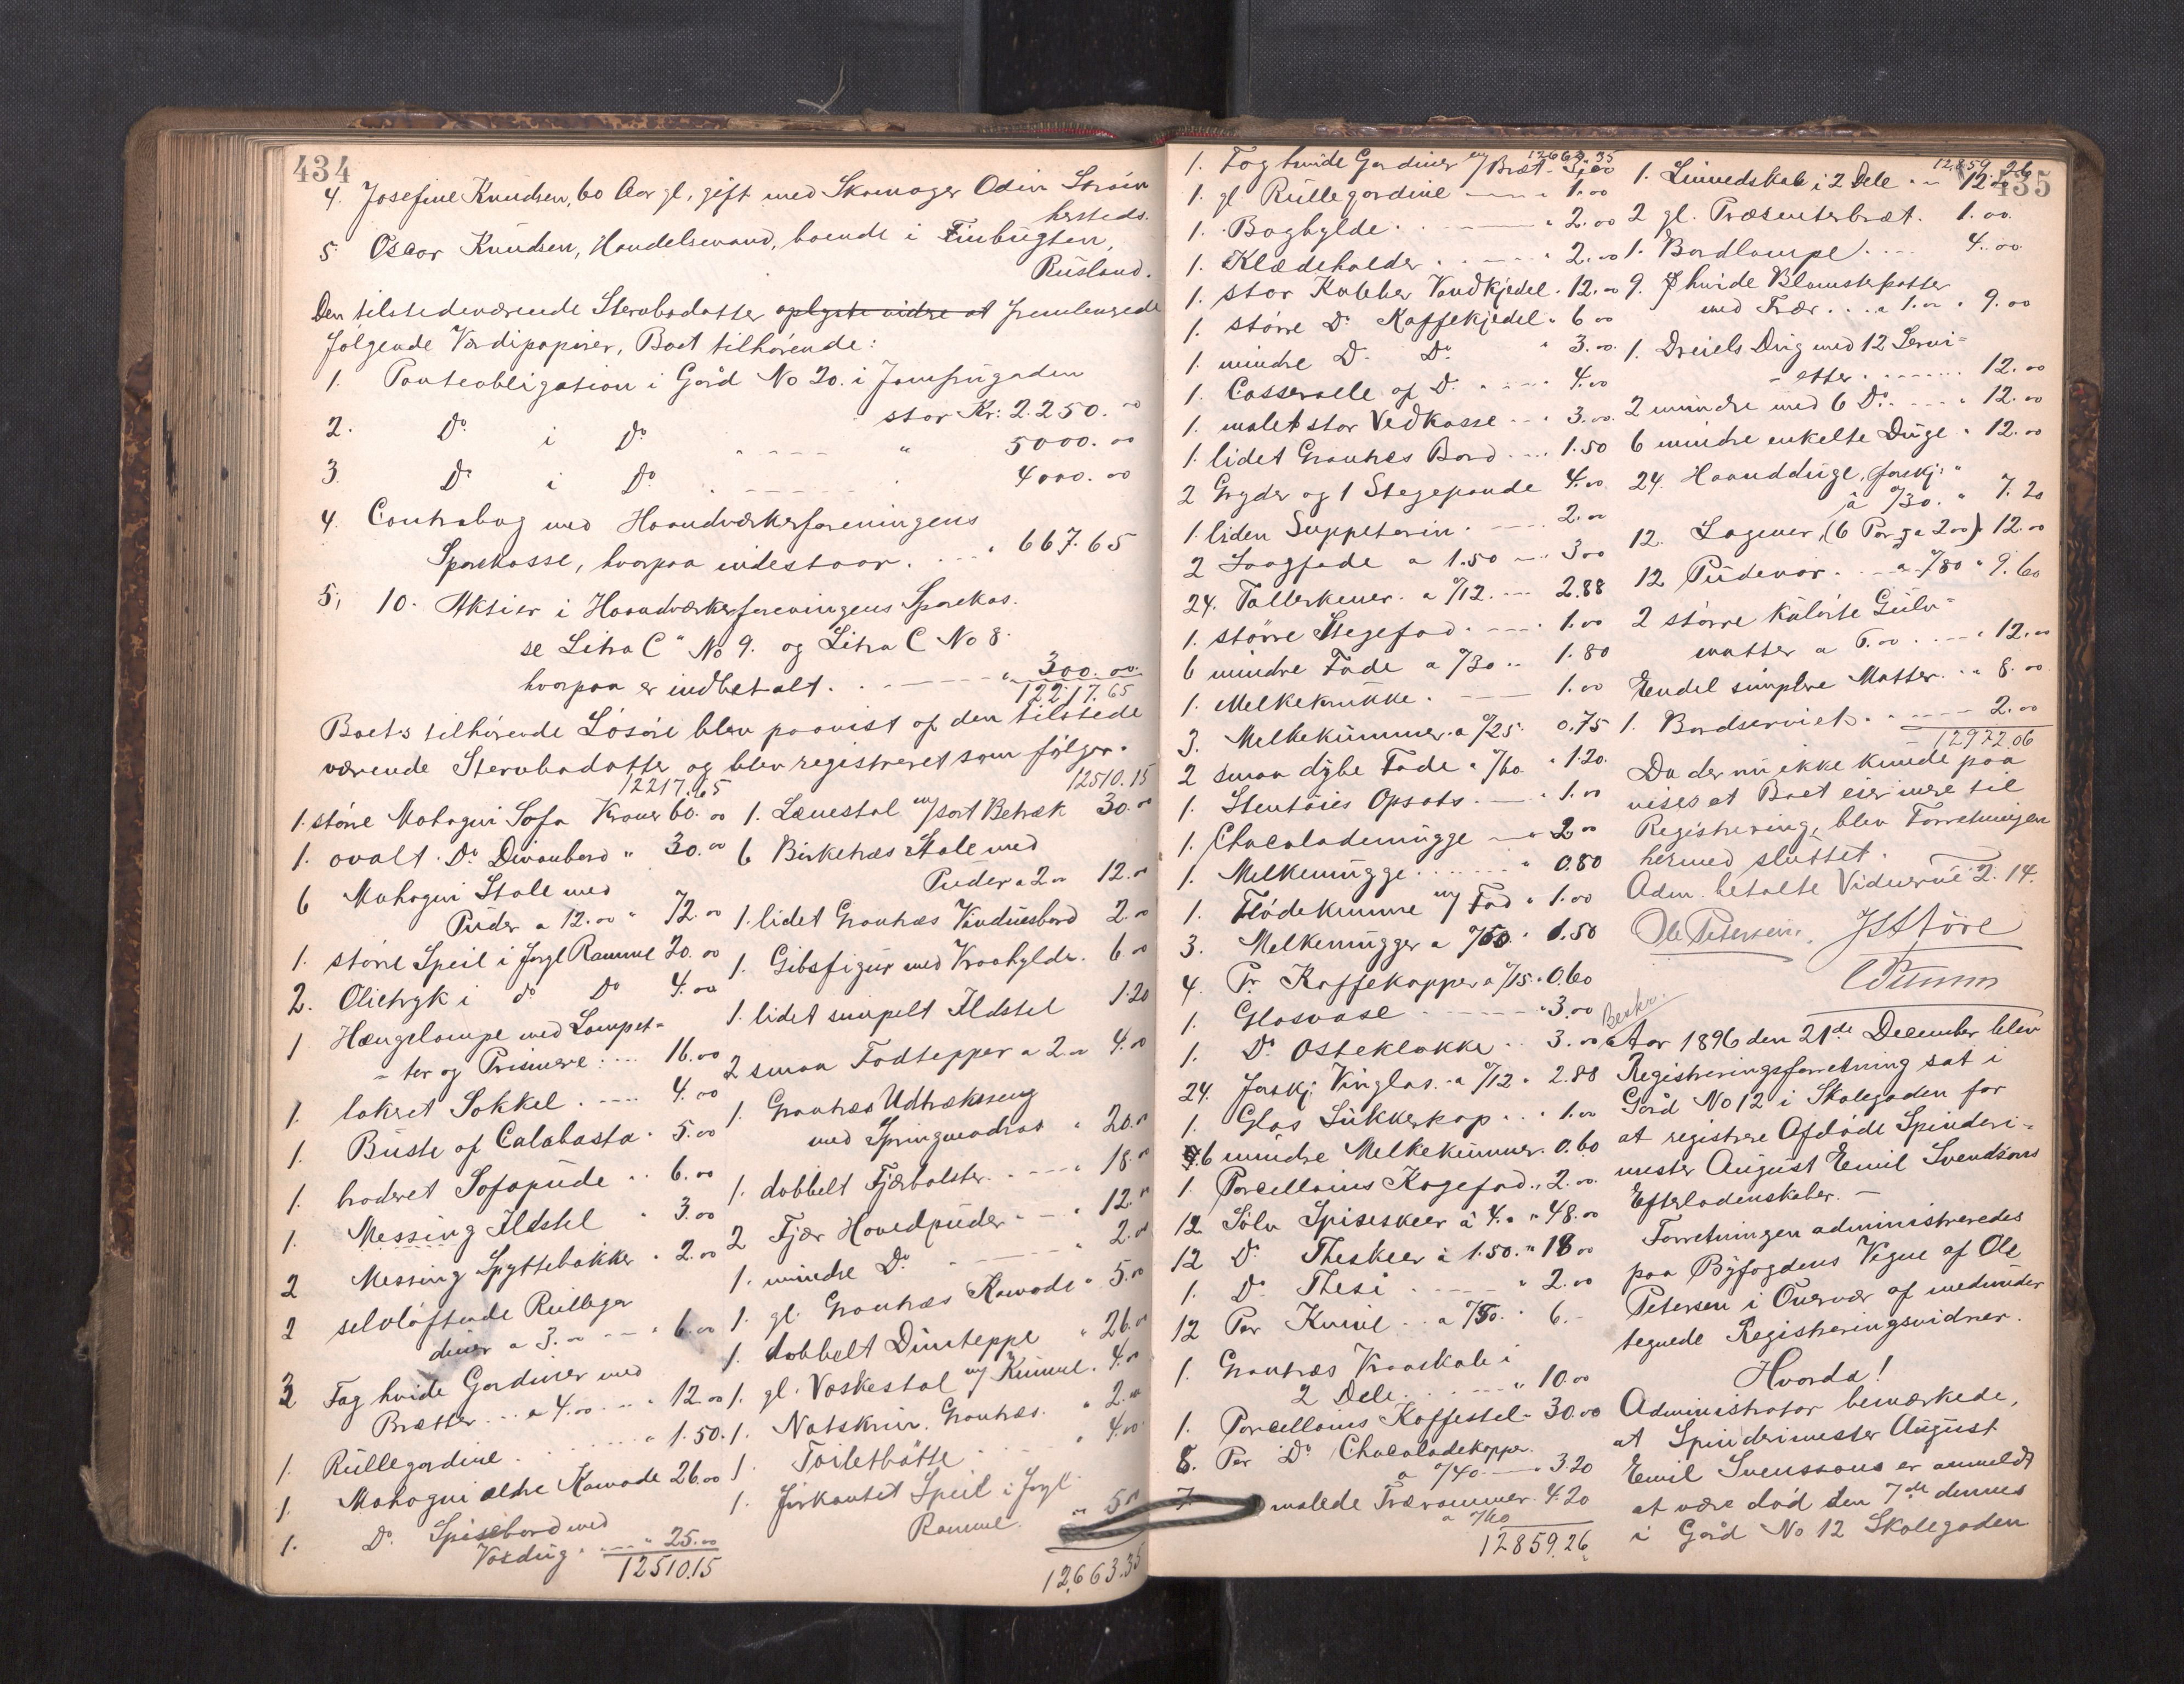 434
4. Josefine Knudsen, 60 Aar gl, gift med Skomager Odin Strøm
hersteds.
5 Oscar Knudsen, Handelsmand, boende i Finbugten,
Rusland.
Den tilstedeværende Stervbodatter oplyste vidre at fremlagde
følgende Værdipapirer, Boet tilhørende:
1. Panteobligation i Gård No 20. i Jomfrugaden
stor Kr: 2.250.00
2. Do i Do " 5000.00
3. Do i Do 4000.00
4. Contrabog med Haandværkerforeningens
Sparekasse, hvorpaa indestaar. " 667.65
5, 10. Aktier i Haandværkerforeningens Sparekas-
se Litra C " No 9. og Litra C No 8.
hvorpaa er indbetalt. " 300.00
12217.65
Boets tilhørende Løsøre blev paavist af den tilstede
værende Stervbodatter og blev registreret som følger.
12217.65
1. større Mahogni Sofa Kroner 60.00
1. ovalt Do Divanbord " 30.00
6 Mahogni Stole med
Puder a 12.00 " 72.00
1. større Speil i forgl Ramme 20.00
2. Olietryk i do Do 4.00
1 Hængelampe med Lampet-
ter og Prismere 16.00
1. lakeret Sokkel 4.00
1. Büste af Calabasta 5.00
1. broderet Sofapude 6.00
1. Messing Ildstel " 3.00
2 Messing Spyttebakker " 2.00
2 selvløftende Rullegar
diner a 3.00 " 6.00
3 Fag hvide Gardiner med
Brætter a 4.00 " 12.00
1. Rullegardine " 1.50
1. Mahogni ældre Komode 26.00
1. Do Spisebord med
Voxdug " 25.00
12510.15
12510.15
1. Lænestol m/sort Betræk 30.00
6 Birketræs Stole med
Puder a 2.00 12.00
1. lidet Grantræs Vinduesbord 2.00
1. Gibsfigur med Kraahylde. 6.00
1. lidet simpelt Ildstel 1.20
2 smaa Fodtepper a 2.00 4.00
1. Grantræs Udtræksseng
med Springmadras " 20.00
1. dobbelt Fjærbolster " 18.00
2 Fjær Hovedpuder " 12.00
1. mindre Do " 2.00
1. gl. Grantræs Komode " 5.00
1. dobbelt Dunteppe " 26.00
1. gl. Vaskestol m/ Kumme 4.00
1. Natskrin. Grantræs " 2.00
1. Toiletbøtte " 4.00
1. firkantet Speil i forgl
Ramme. " 5.00
12,663.35
12663.35
1. Fag hvide Gardiner m/ Bræt 3.00
1. gl Rullegardine 1.00
1. Boghylde " 2.00
1. Klædeholder " 2.00
1. stor Kobber Vandkjedel 12.00
1. større Do Kaffekjedel " 6.00
1. mindre Do Do " 3.00
1. Casserolle af Do 4.00
1. malet stor Vedkasse " 3.00
1. lidet Grantræs Bord 1.50
2 Gryder og 1 Stegepande 4.00
1. liden Suppeterin 2.00
2 Laagfade a 1.50 3.00
24. Tallerkener a %12 2.88
1. større Stegefad 1.00
6 mindre Fade a %30 1.80
1. Melkekrukke 1.00
3. Melkekummer a %25 0.75
2 smaa dybe Fade a %60 1.20
1. Stentøies Opsats " 1.00
1. Chocolademugge " 2.00
1. Melkemugge " 0.80
1. Flødekumme m/ Fad " 1.00
3. Melkemugger a %50 " 1.50
4. Pr. Kaffekopper a %15 " 0.60
1. Glasvase " 3.00
1. Do Osteklokke 3.00
24. forskj. Vinglas a %12 " 2.88
1. Glas Sukkerkop " 1.00
6 mindre Melkekummer 0.60
1. Porcellains Kagefad " 2.00
12 Sølv Spiseskeer à 4.00 " 48.00
12 Do Theskeer à 1.50 " 18.00
1. Do Thesi " 2.00
12 Par Knive a %50 " 6.-
1. Grantræs Kraaskab i
2 Dele. " 10.00
1. Porcellains Kaffestel " 30.00
8. Par Do Chocoladekopper
a %40 " 3.20
7. malede Trærammer 4.20
a %60
12859.26
435
12859.26
1. Linnedskab i 2 Dele 12.00
2 gl. Præsenterbræt. 1.00
1. Bordlampe 4.00
9. hvide Blomsterpotter
med Trær a 1.00 " 9.00
1. Dreiels Dug med 12 Servi-
etter 12.00
2 mindre med 6 Do " 12.00
6 mindre enkelte Duge " 12.00
24. Haandduge, forskj.
à %30 " 7.20
12. Lagener, (6 Par a 2.00) 12.00
12 Pudevar a %80 " 9.60
2 større kulørte Gulv-
matter a 6.00 " 12.00
Endel simplere Matter " 8.00
1. Bordserviet 2.00
12972.06
Da der nu ikke kunde paa
vises at Boet eier mere til
Registrering, blev Forretningen
hermed sluttet.
Adm. betalte Vidnerne 2.14.
Ole Petersen.
Beskr.
Aar 1896 den 21de December blev
Registreringsforretning sat i
Gård No 12 i Skolegaden for
at registrere Afdøde Spinderi-
mester August Emil Svendsons
Efterladenskaber. –
Forretningen administreredes
paa Byfogdens Vegne af Ole
Petersen i Overvær af medunder
tegnede Registreringsvidner.
Hvorda!
Administrator bemærkede,
at Spinderimester August
Emil Svenssons er anmeldt
at være død den 7de dennes
i Gård No 12 Skolegaden